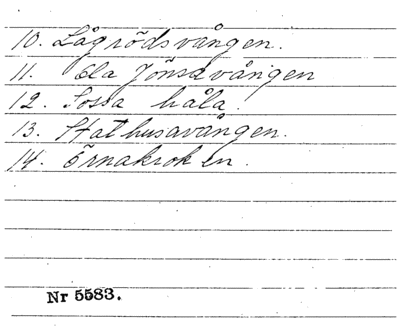 10. Lågrödsvången.
11. Ola Jönsavången
12. Tossa håla.
13. Stathusavången.
14. Örnakroken.
Nr 5583.